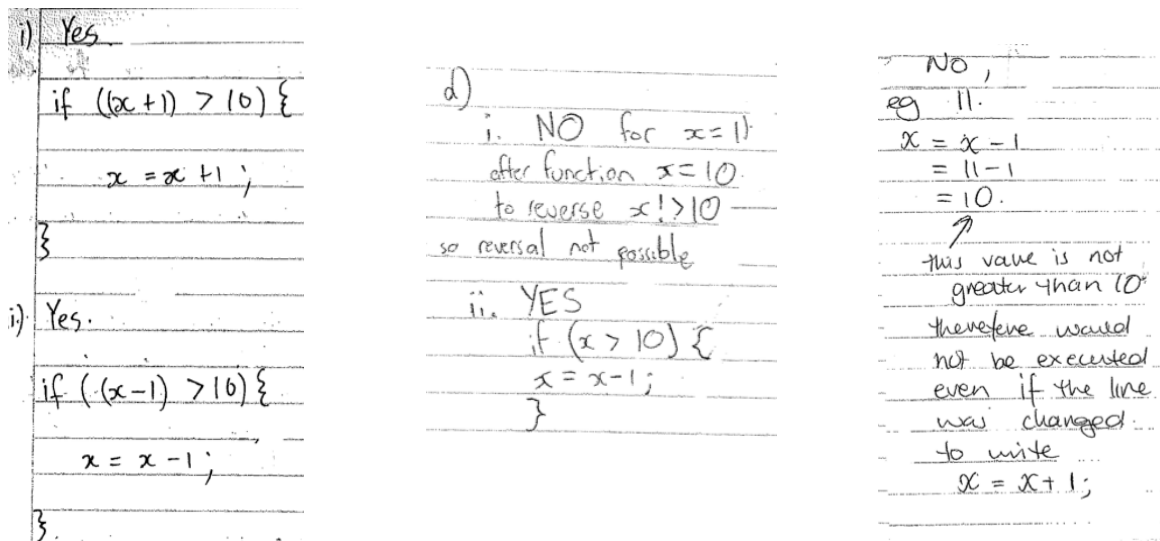 i) Yes.
if ((x+1) > 10) {
x = x+1 ;
}
ii) Yes.
if ((x-1) > 10) {
x = x-1 ;
}
d)
i. NO for x=11
after function x=10.
to reverse x!>10
so reversal not possible
ii. YES
if (x > 10) {
x = x-1 ;
}
NO ,
eg 11.
x = x - 1
= 11 - 1
= 10.
this value is not
greater than 10
therefore would
not be executed
even if the line
was changed
to write
x = x + 1 ;